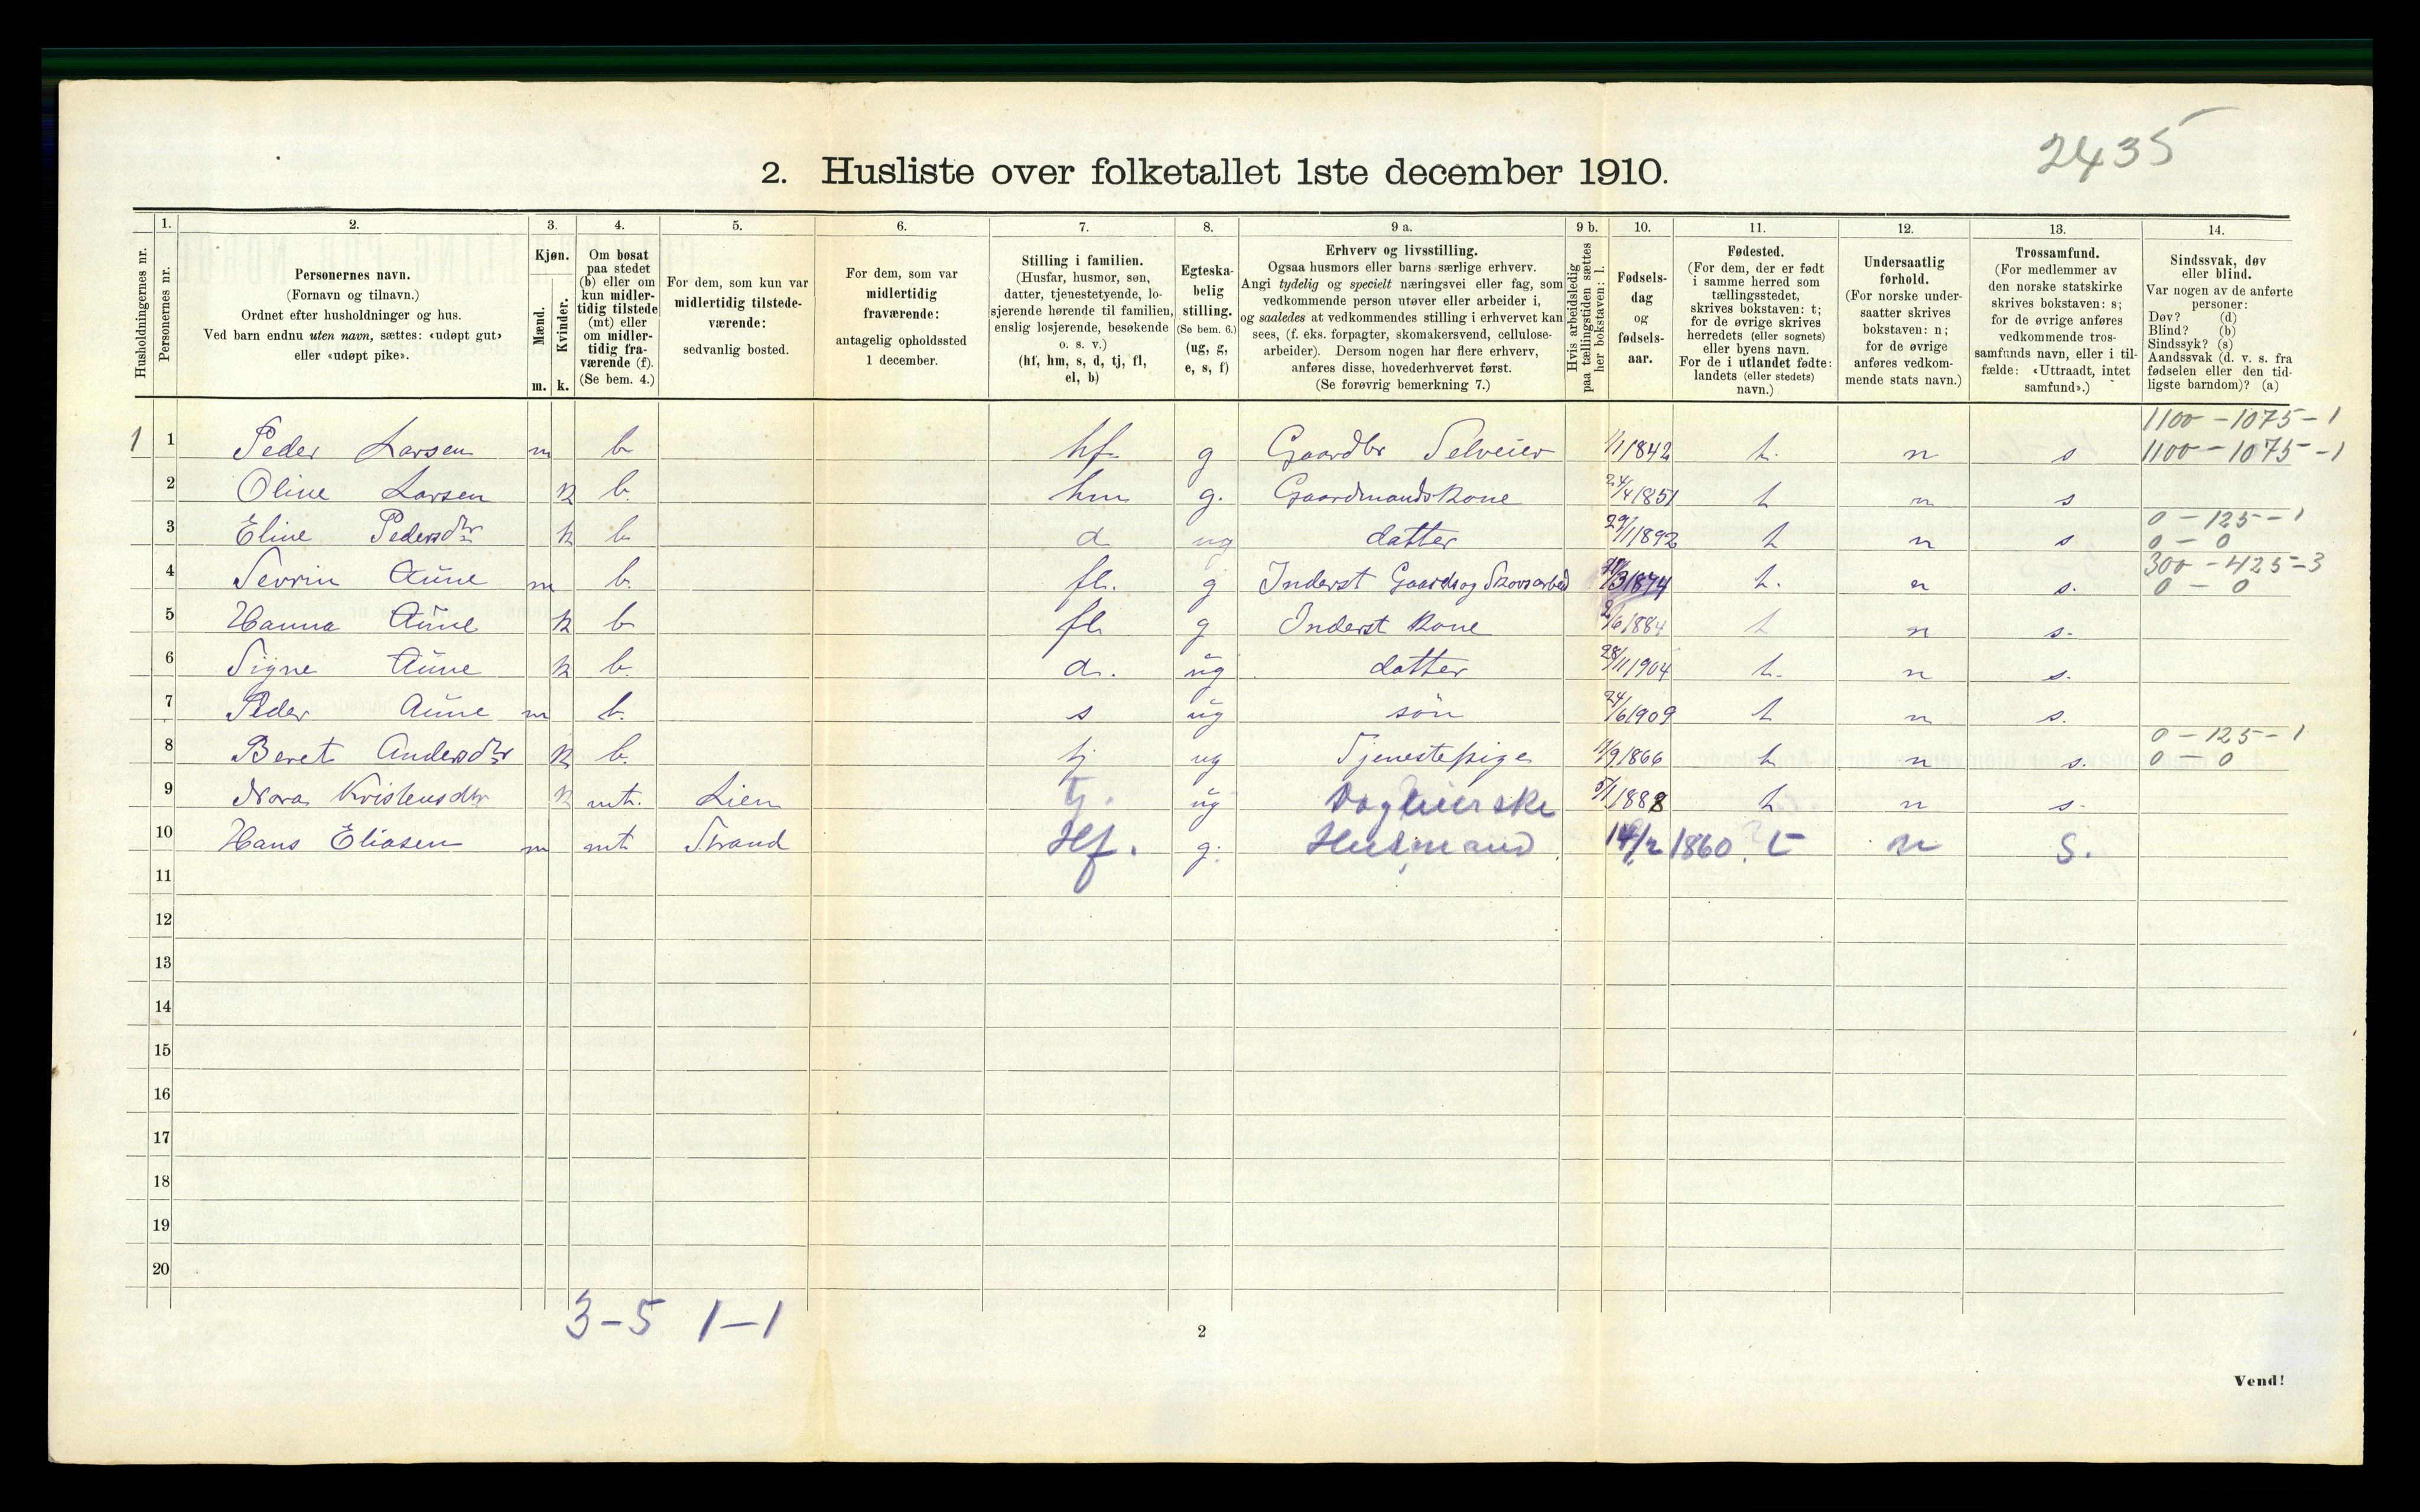 2435
2. Husliste over folketallet 1ste december 1910.
Husholdningernes nr.
1.
Personernes nr.
2.
Personernes navn.
(Fornavn og tilnavn.)
Ordnet efter husholdninger og hus.
Ved barn endnu uten navn, sættes: «udøpt gut»
eller «udøpt pike».
3.
Kjøn.
Mænd.
Kvinder.
m. k.
4.
Om bosat
paa stedet
(b) eller om
kun midler-
tidig tilstede
(mt) eller
om midler-
tidig fra-
værende (f).
(Se bem. 4.)
5.
For dem, som kun var
midlertidig tilstede-
værende:
sedvanlig bosted.
6.
For dem, som var
midlertidig
fraværende:
antagelig opholdssted
1 december.
7.
Stilling i familien.
(Husfar, husmor, søn,
datter, tjenestetyende, lo-
sjerende hørende til familien,
enslig losjerende, besøkende
o. s. v.)
(hf, hm, s, d, tj, fl,
el, b)
8.
Egteska-
belig
stilling.
(Se bem. 6.)
(ug, g,
e, s, f)
9 a.
Erhverv og livsstilling.
Ogsaa husmors eller barns særlige erhverv.
Angi tydelig og specielt næringsvei eller fag, som
vedkommende person utøver eller arbeider i,
og saaledes at vedkommendes stilling i erhvervet kan
sees, (f. eks. forpagter, skomakersvend, cellulose-
arbeider). Dersom nogen har flere erhverv,
anføres disse, hovederhvervet først.
(Se forøvrig bemerkning 7.)
9 b.
Hvis arbeidsledig
paa tællingstiden sættes
her bokstaven: l.
10.
Fødsels-
dag
og
fødsels-
aar.
11.
Fødested.
(For dem, der er født
i samme herred som
tællingsstedet,
skrives bokstaven: t;
for de øvrige skrives
herredets (eller sognets)
eller byens navn.
For de i utlandet fødte:
landets (eller stedets)
navn.)
12.
Undersaatlig
forhold.
(For norske under-
saatter skrives
bokstaven: n;
for de øvrige
anføres vedkom-
mende stats navn.)
13.
Trossamfund.
(For medlemmer av
den norske statskirke
skrives bokstaven: s;
for de øvrige anføres
vedkommende tros-
samfunds navn, eller i til-
fælde: «Uttraadt, intet
samfund».)
14.
Sindssvak, døv
eller blind.
Var nogen av de anførte
personer:
Døv? (d)
Blind? (b)
Sindssyk? (s)
Aandssvak (d. v. s. fra
fødselen eller den tid-
ligste barndom)? (a)
1100 - 1075 - 1
1 1 Peder Larsen m b hf. g Gaardbr Selveier 1/1 1842 t. n s 1100 - 1075 - 1
2 Oline Larsen k b. hm g. Gaardmandskone 24/4 1851 t n s
0 - 125 - 1
3 Eline Pedersdtr k b d ug datter 29/1 1892 t n s 0 - 0
300 - 425 - 3
4 Sevrin Aune m b. fl. g Inderst Gaards og Skovsarbeid 3 1874 t. n s. 0 - 0
5 Hanna Aune k b fl g Inderst kone 2/6 1884 t n s.
6 Signe Aune k b. d. ug datter 28/11 1904 t. n s.
7 Peder Aune m b. s ug søn 24/6 1909 t n s.
0 - 125 - 1
8 Beret Andersdtr k b. tj ug Tjenestepige 11/9 1866 t n s. 0 - 0
9 Nora Kristensdtr k mt. Lien tj. ug 5/1 1888 t n s.
10 Hans Eliasen m mt Strand Hf. g. Husmand 14/2 1860. t n s.
11
12
13
14
15
16
17
18
19
20
3 - 5 1 - 1
2
Vend!